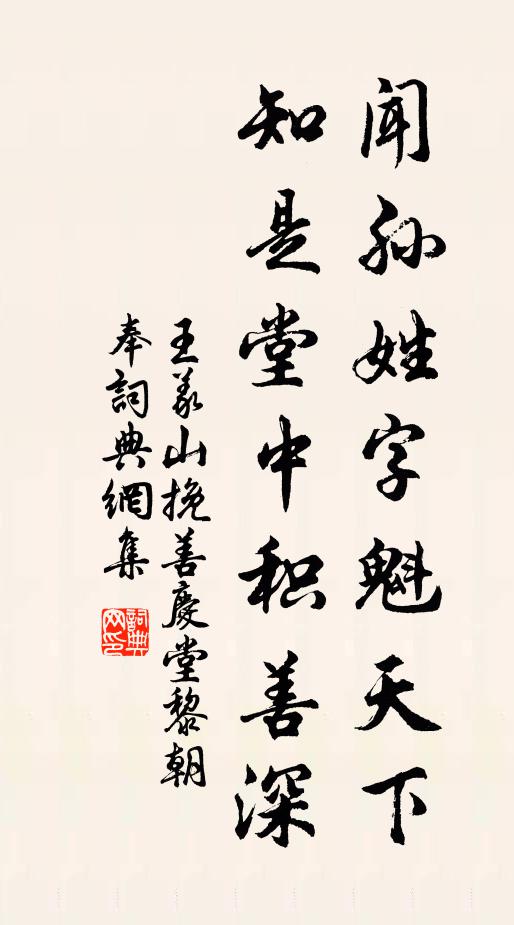 闻孙姓字魁天下
知是堂中积善深
王义山挽善庆堂黎朝
奉詞典網集
詞典网印